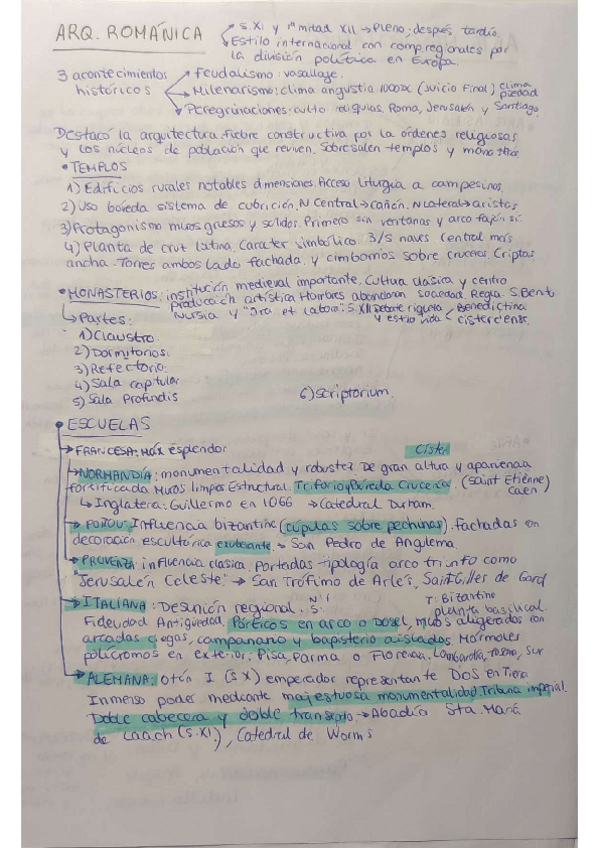 ARQ. ROMÁNICA
S.XI y 1ª mitad XII → Pleno; después tardío.
Estilo internacional con comp. regionales por
la división política en Europa.
3 acontecimientos
históricos
Feudalismo: vasallaje.
Milenarismo: clima angustia 1000DX (Juicio Final) clima
piedad
Peregrinaciones: culto reliquias Roma, Jerusalén y Santiago.
Destacó la arquitectura. Fiebre constructiva por la órdenes religiosas
y los núcleos de población que reviven. Sobresalen templos y
• TEMPLOS
1) Edificios rurales notables dimensiones. Acceso liturgia a campesinos.
2) Uso bóveda sistema de cubrición. N Central → cañón. N Lateral → aristas
3) Protagonismo muros gruesos y solidos. Primero sin ventanas y arco fajón sí.
4) Planta de cruz latina. Caracter simbólico. 3/5 naves central más
ancha. Torres ambos lado fachada. y cimborrios sobre cruceros. Criptas
• MONASTERIOS: institución medieval importante. Cultura clásica y centro
producción artística Hombres abandonan sociedad Regla S. Benito
Nursia y "Ora et labora". S.XII Debate riqueza y estilo vida
Benedictina
cisterciense.
↳ Partes:
1) Claustro.
2) Dormitorios.
3) Refectorio.
4) Sala capitular
5) Sala Profundis
6) Scriptorium.
• ESCUELAS
→ FRANCESA: máx esplendor
Cister
→ NORMANDÍA: monumentalidad y robustez De gran altura y apariencia
fortificada Muros limpios Estructural. Triforio y Bóveda Crucería. (Saint Etienne)
Caen
↳ Inglaterra: Guillermo en 1066 → Catedral Durham.
→ POITOU: Influencia bizantina (cúpulas sobre pechinas). fachadas con
decoración escultórica exuberante. → San Pedro de Angulema.
→ PROVENZA: influencia clasica. Portadas tipología arco triunfo como
"Jerusalén Celeste". → San Trófimo de Arles, Saint Gilles de Gard
→ ITALIANA: Desunión regional. N: S: T: Bizantino
planta basilical.
Fidelidad Antigüedad. Pórticos en arco o Dosel, muros aligerados con
arcadas ciegas, campanario y bapisterio aislados. Mármoles
polícromos en exterior. Pisa, Parma o Florencia. Lombardía, Tosena, Sur
→ ALEMANA: Otón I (S X) emperador representante Dios en Tierra
Inmerso poder mediante majestuosa monumentalidad. Tribuna imperial.
Doble cabecera y doble transepto → Abadía Sta. María
de Laach (S.XI), Catedral de Worms